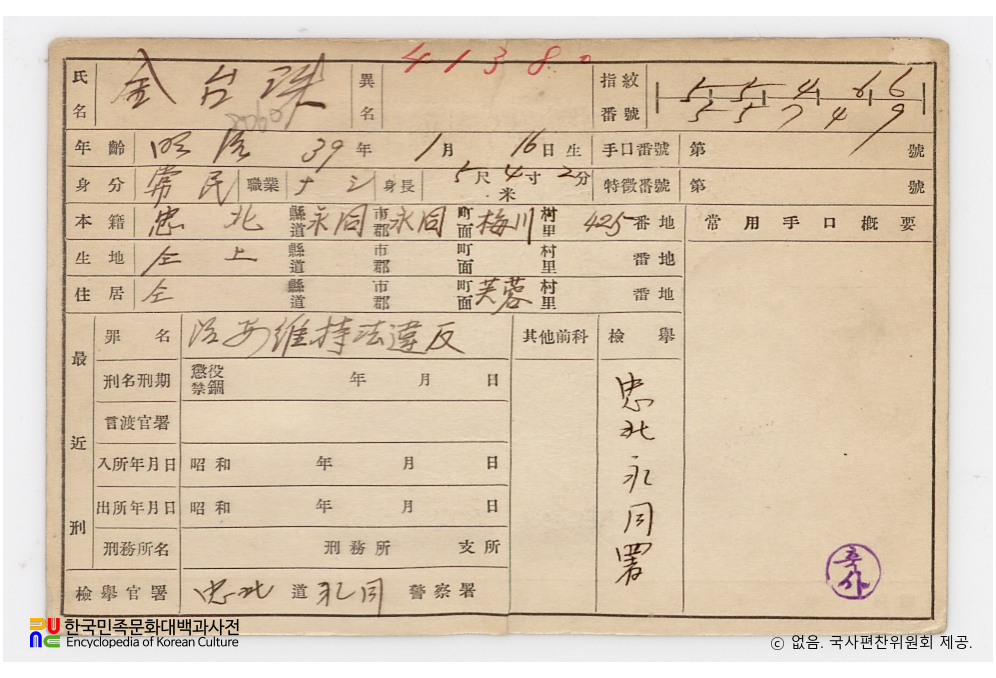 41380
氏名 金台珠 異名 指紋番號 5 5 4 6 6
5 5 7 4 9
年齡 明治 39年 1月 16日生 手口番號 第 號
身分 常民 職業 ナシ 身長 5尺4寸2分 米 特徵番號 第 號
本籍 忠北 縣道 永同 市郡 永同 町面 梅川 村里 425番地 常用手口概要
生地 仝上 縣道 市郡 町面 村里 番地
住居 仝 縣道 市郡 町面 芙蓉 村里 番地
最近刑
罪名 治安維持法違反 其他前科 檢擧
刑名刑期 懲役 禁錮 年 月 日
言渡官署
入所年月日 昭和 年 月 日
出所年月日 昭和 年 月 日
刑務所名 刑務所 支所
檢擧官署 忠北 道 永同 警察署
忠北永同署
한국민족문화대백과사전
Encyclopedia of Korean Culture
ⓒ 없음. 국사편찬위원회 제공.